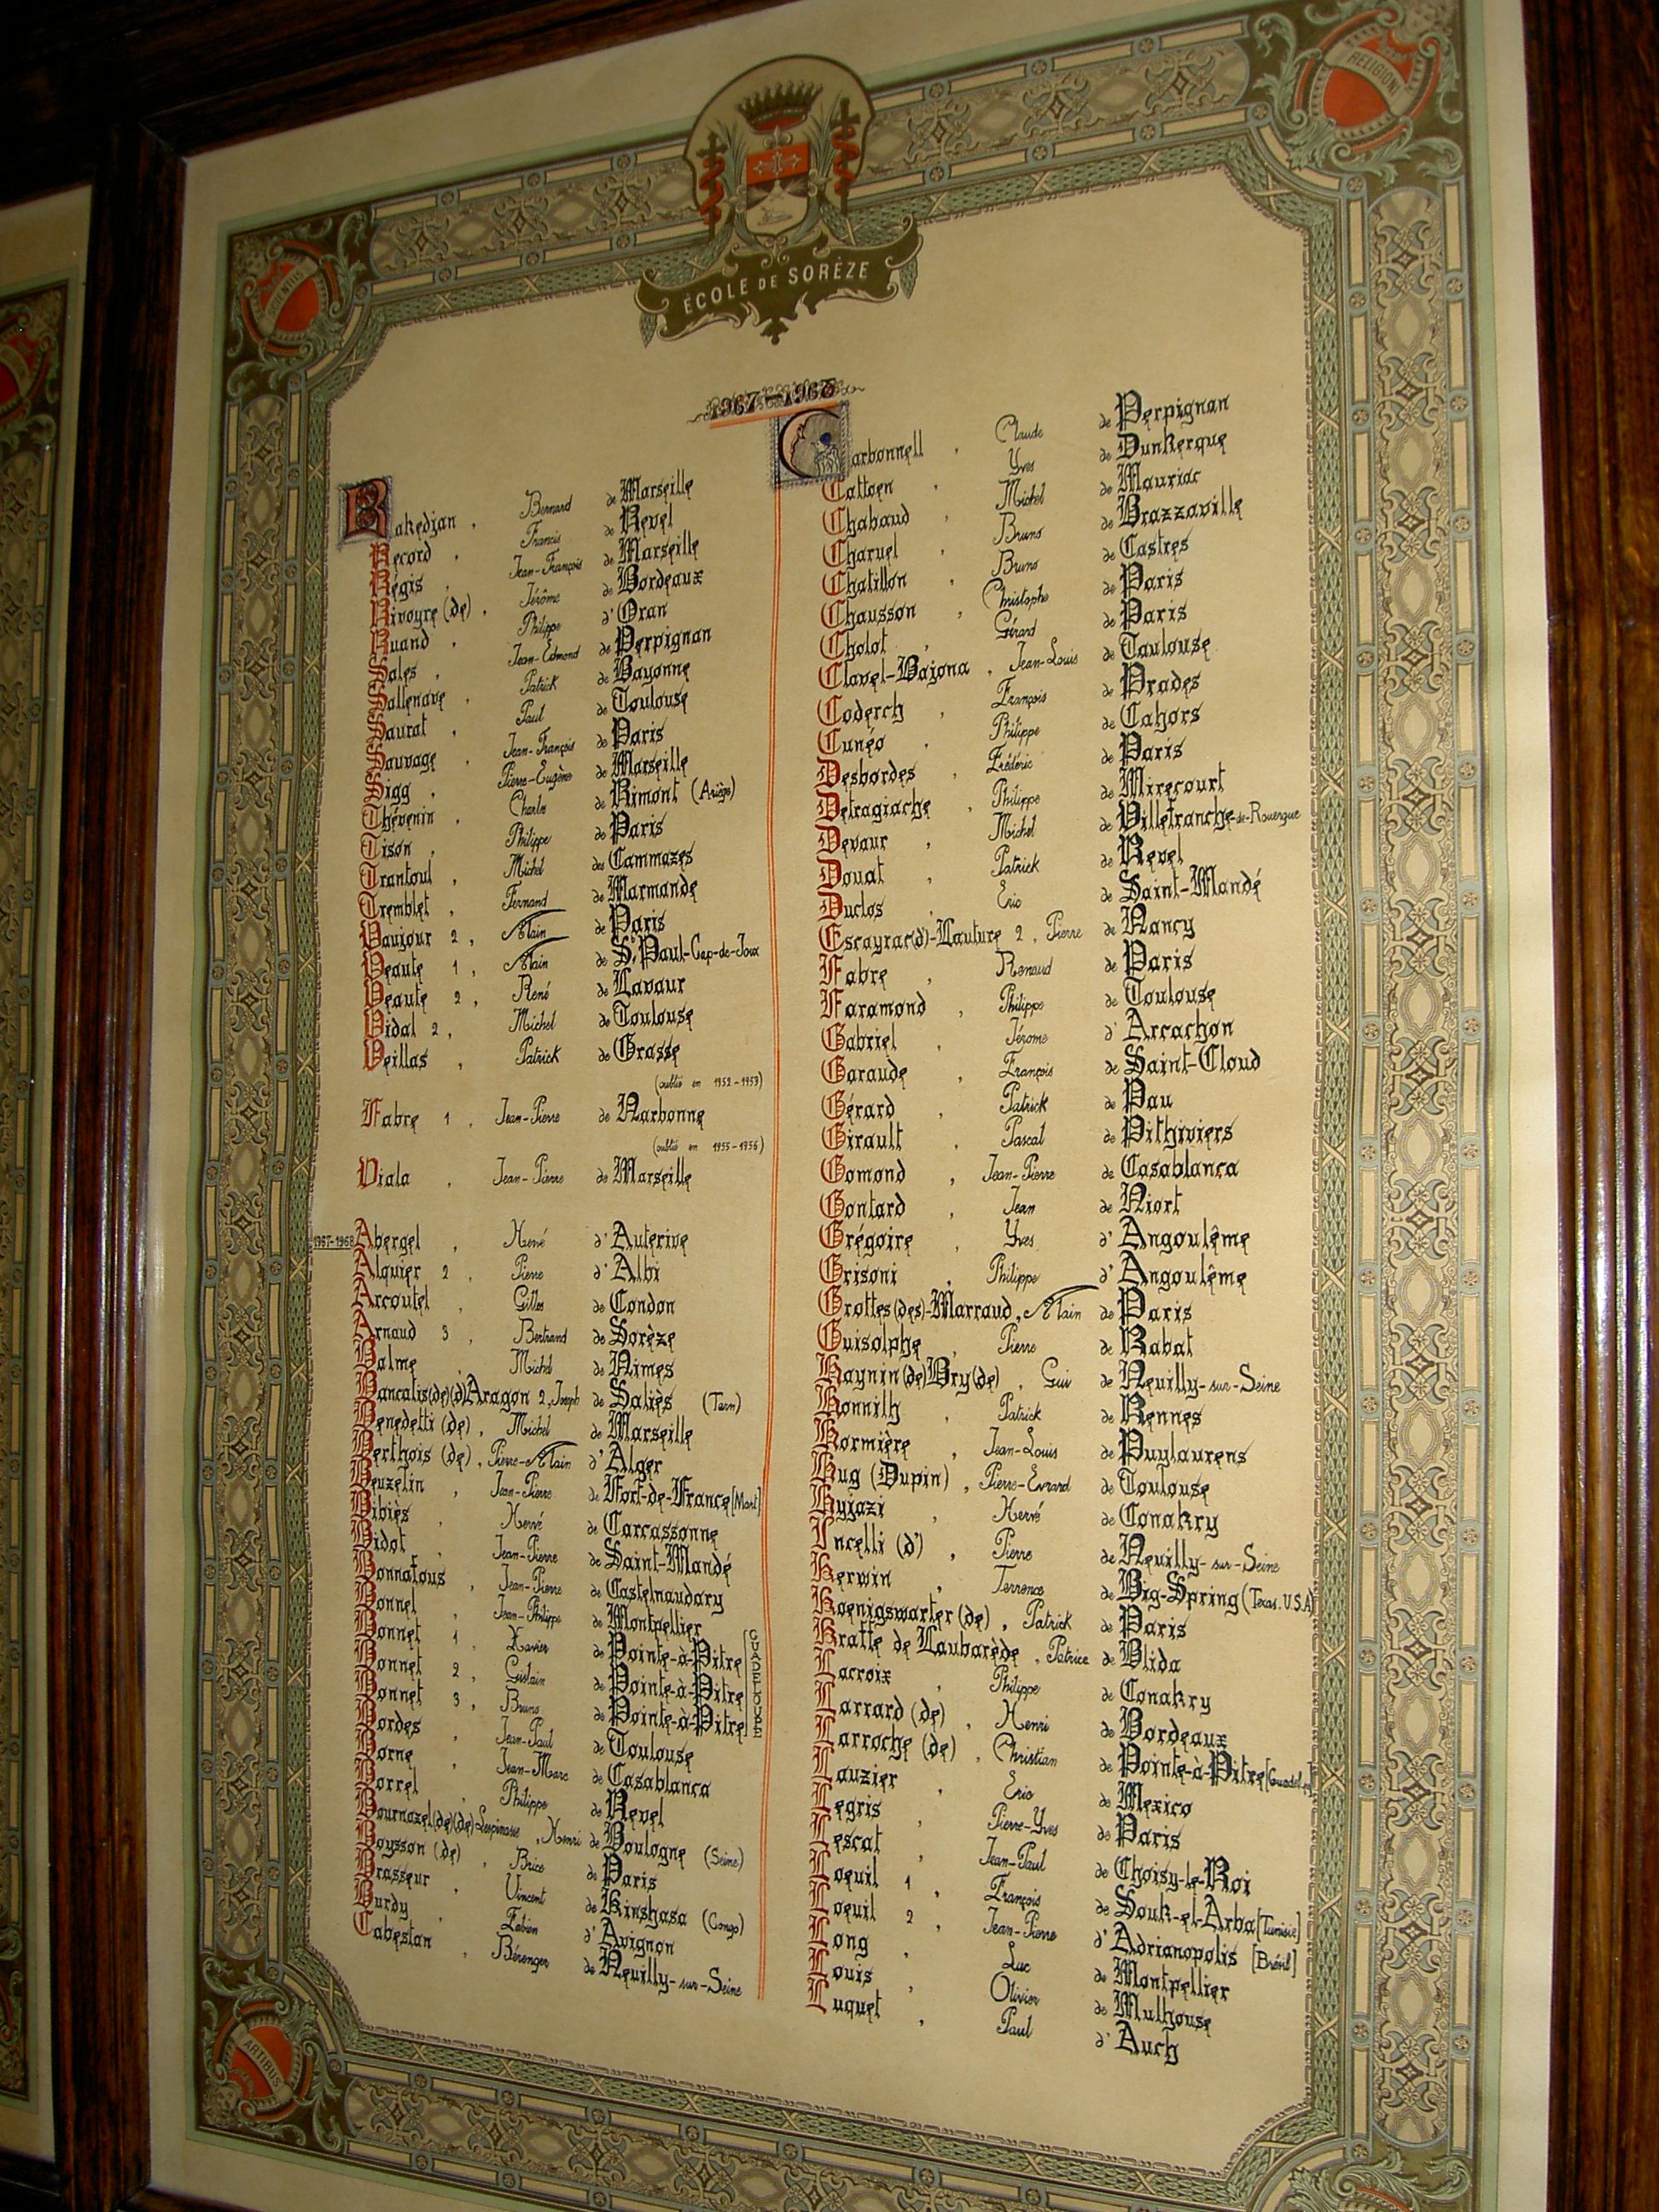 SCIENTIIS
RELIGIONI
ÉCOLE DE SORÈZE
1967-1968
Rakedjan, Bernard de Marseille
Record, Francis de Revel
Régis, Jean-François de Marseille
Rivoyre (de), Jérôme de Bordeaux
Ruand, Philippe d'Oran
Sales, Jean-Edmond de Perpignan
Sallenave, Patrick de Bayonne
Saurat, Paul de Toulouse
Sauvage, Jean-François de Paris
Sigg, Pierre-Eugène de Marseille
Thévenin, Charles de Rimont (Ariège)
Tison, Philippe de Paris
Trantoul, Michel des Cammazes
Tremblet, Fernand de Marmande
Vaujour 2, Alain de Paris
Veaute 1, Alain de St Paul-Cap-de-Joux
Veaute 2, René de Lavaur
Vidal 2, Michel de Toulouse
Veillas, Patrick de Grasse
(oublié en 1952-1953)
Fabre 1, Jean-Pierre de Narbonne
(oublié en 1955-1956)
Viala, Jean-Pierre de Marseille
1967-1968 Abergel, Hervé d'Auterive
Alquier 2, Pierre d'Albi
Arcoutel, Gilles de Condon
Arnaud 3, Bertrand de Sorèze
Balme, Michel de Nimes
Bancalis(de)(d')Aragon 2, Joseph de Saliès (Tarn)
Benedetti (de), Michel de Marseille
Berthois (de), Pierre-Alain d'Alger
Beuzelin, Jean-Pierre de Fort-de-France [Mart]
Bibiès, Hervé de Carcassonne
Bidot, Jean-Pierre de Saint-Mandé
Bonnafous, Jean-Pierre de Castelnaudary
Bonnel, Jean-Philippe de Montpellier
Bonnet 1, Xavier de Pointe-à-Pitre
Bonnet 2, Guslain de Pointe-à-Pitre
Bonnet 3, Bruno de Pointe-à-Pitre
GUADELOUPE
Bordes, Jean-Paul de Toulouse
Borne, Jean-Marc de Casablanca
Borrel, Philippe de Revel
Bournazel(de)(de)Lespinasse, Henri de Boulogne (Seine)
Boysson (de), Brice de Paris
Brasseur, Vincent de Kinshasa (Congo)
Burdy, Fabien d'Avignon
Cabestan, Bérenger de Neuilly-sur-Seine
Carbonnell, Claude de Perpignan
Cattoen, Yves de Dunkerque
Chabaud, Michel de Mauriac
Charuel, Bruno de Brazzaville
Chatillon, Bruno de Castres
Chausson, Christophe de Paris
Cholot, Gérard de Paris
Clavel-Bajona, Jean-Louis de Toulouse
Coderch, François de Prades
Cunéo, Philippe de Cahors
Desbordes, Frédéric de Paris
Detragiache, Philippe de Mirecourt
Devaur, Michel de Villefranche-de-Rouergue
Douat, Patrick de Revel
Duclos, Eric de Saint-Mandé
Escayrac(d')-Lauture 2, Pierre de Nancy
Fabre, Renaud de Paris
Faramond, Philippe de Toulouse
Gabriel, Jérome d'Arcachon
Garaude, François de Saint-Cloud
Gérard, Patrick de Pau
Girault, Pascal de Pithiviers
Gomond, Jean-Pierre de Casablanca
Gontard, Jean de Niort
Grégoire, Yves d'Angoulême
Grisoni, Philippe d'Angoulême
Grottes(des)-Marraud, Alain de Paris
Guisolphe, Pierre de Rabat
Haynin(de)Bry(de), Gui de Neuilly-sur-Seine
Honnilh, Patrick de Rennes
Hormière, Jean-Louis de Puylaurens
Hug (Dupin), Pierre-Evrard de Toulouse
Hyjazi, Hervé de Conakry
Incelli (d'), Pierre de Neuilly-sur-Seine
Kerwin, Terrence de Big-Spring (Texas. U.S.A)
Koenigswarter (de), Patrick de Paris
Kratte de Laubarède, Patrice de Blida
Lacroix, Philippe de Conakry
Larrard (de), Henri de Bordeaux
Larroche (de), Christian de Pointe-à-Pitre
Lauzier, Eric de Mexico
Legris, Pierre-Yves de Paris
Lescat, Jean-Paul de Choisy-le-Roi
Loeuil 1, François de Souk-el-Arba [Tunisie]
Loeuil 2, Jean-Pierre d'Adrianopolis [Brésil]
Long, Luc de Montpellier
Louis, Olivier de Mulhouse
Luquet, Paul d'Auch
ARTIBUS